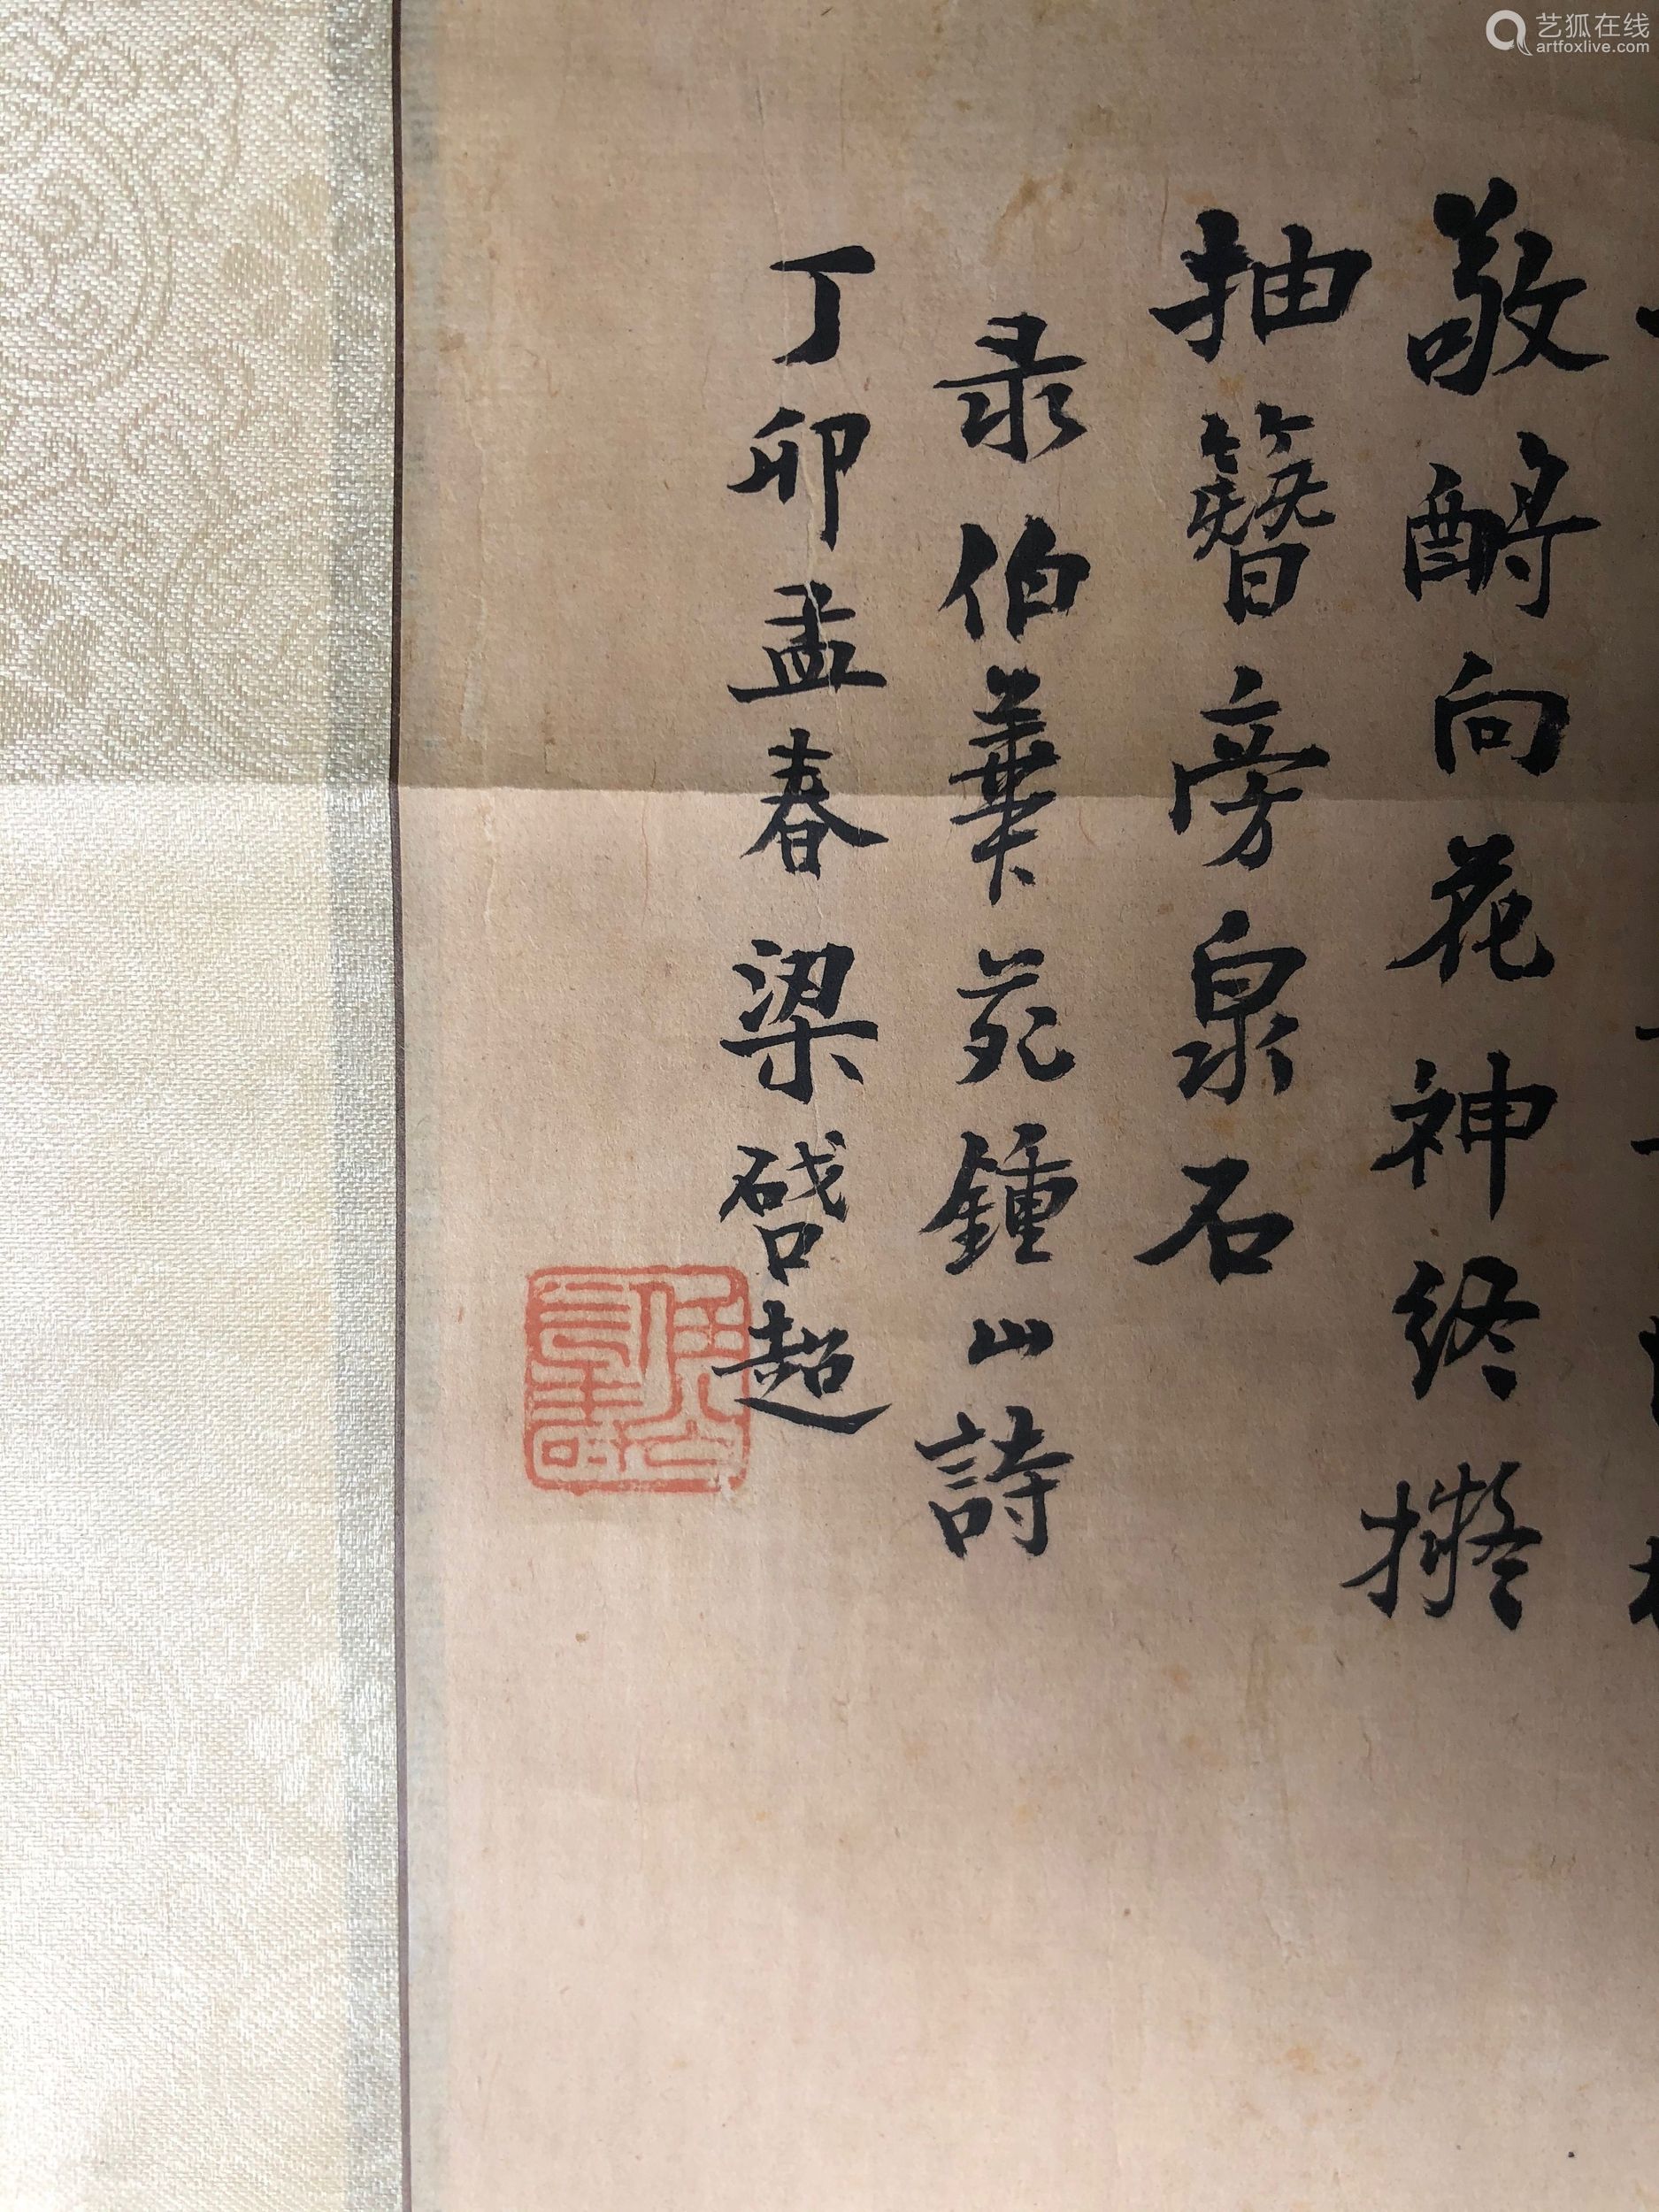 艺狐在线
artfoxlive.com
敬酹向花神终擬
抽簪旁泉石
录伯華苑鍾山詩
丁卯孟春梁啓超